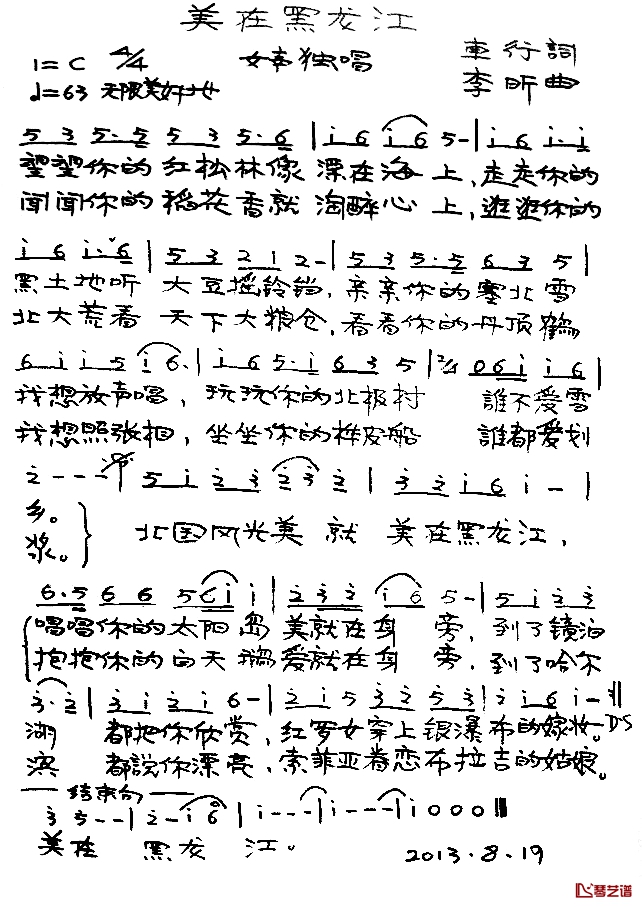 美在黑龙江
1=C 4/4 女声独唱 車行詞
♩=63 无限美好地 李昕曲
5 3 5·5 5 3 5·6 | i 6 i 6 5- | i 6 i·i
望望你的红松林像漂在海上,走走你的
闻闻你的稻花香就淘醉心上,逛逛你的
i 6 i·6 | 5 3 2 1 2- | 5 3 5·5 6 3 5 |
黑土地听大豆摇铃铛,亲亲你的塞北雪
北大荒看天下大粮仓,看看你的丹顶鹤
6 i i 5 i 6· | i 6 5·i 6 3 5 | 2/4 0 6 i i 6 |
我想放声唱,玩玩你的北极村 誰不爱雪
我想照张相,坐坐你的桦皮船 誰都爱划
2 - - - | 5 i 2 3 2 3 2 | 3 2 i 6 i - |
乡。
浆。
北国风光美就美在黑龙江,
6·5 6 6 5 6 i i | 2 3 2 i 6 5- | 5 i 2 3
唱唱你的太阳岛美就在身旁,到了镜泊
抱抱你的白天鹅爱就在身旁,到了哈尔
3·2 | 3 i 2 i 6- | 2 i 5 3 2 5 3 | 2 i 6 i - :‖ DS
湖都把你欣赏,红罗女穿上银瀑布的嫁妆。
滨都説你漂亮,索菲亚眷恋布拉吉的姑娘。
结束句
3 5 - - | 2 - i 6 | i - - - | i - - - | i 0 0 0 ‖
美在黑龙江。
2013·8·19
琴艺谱